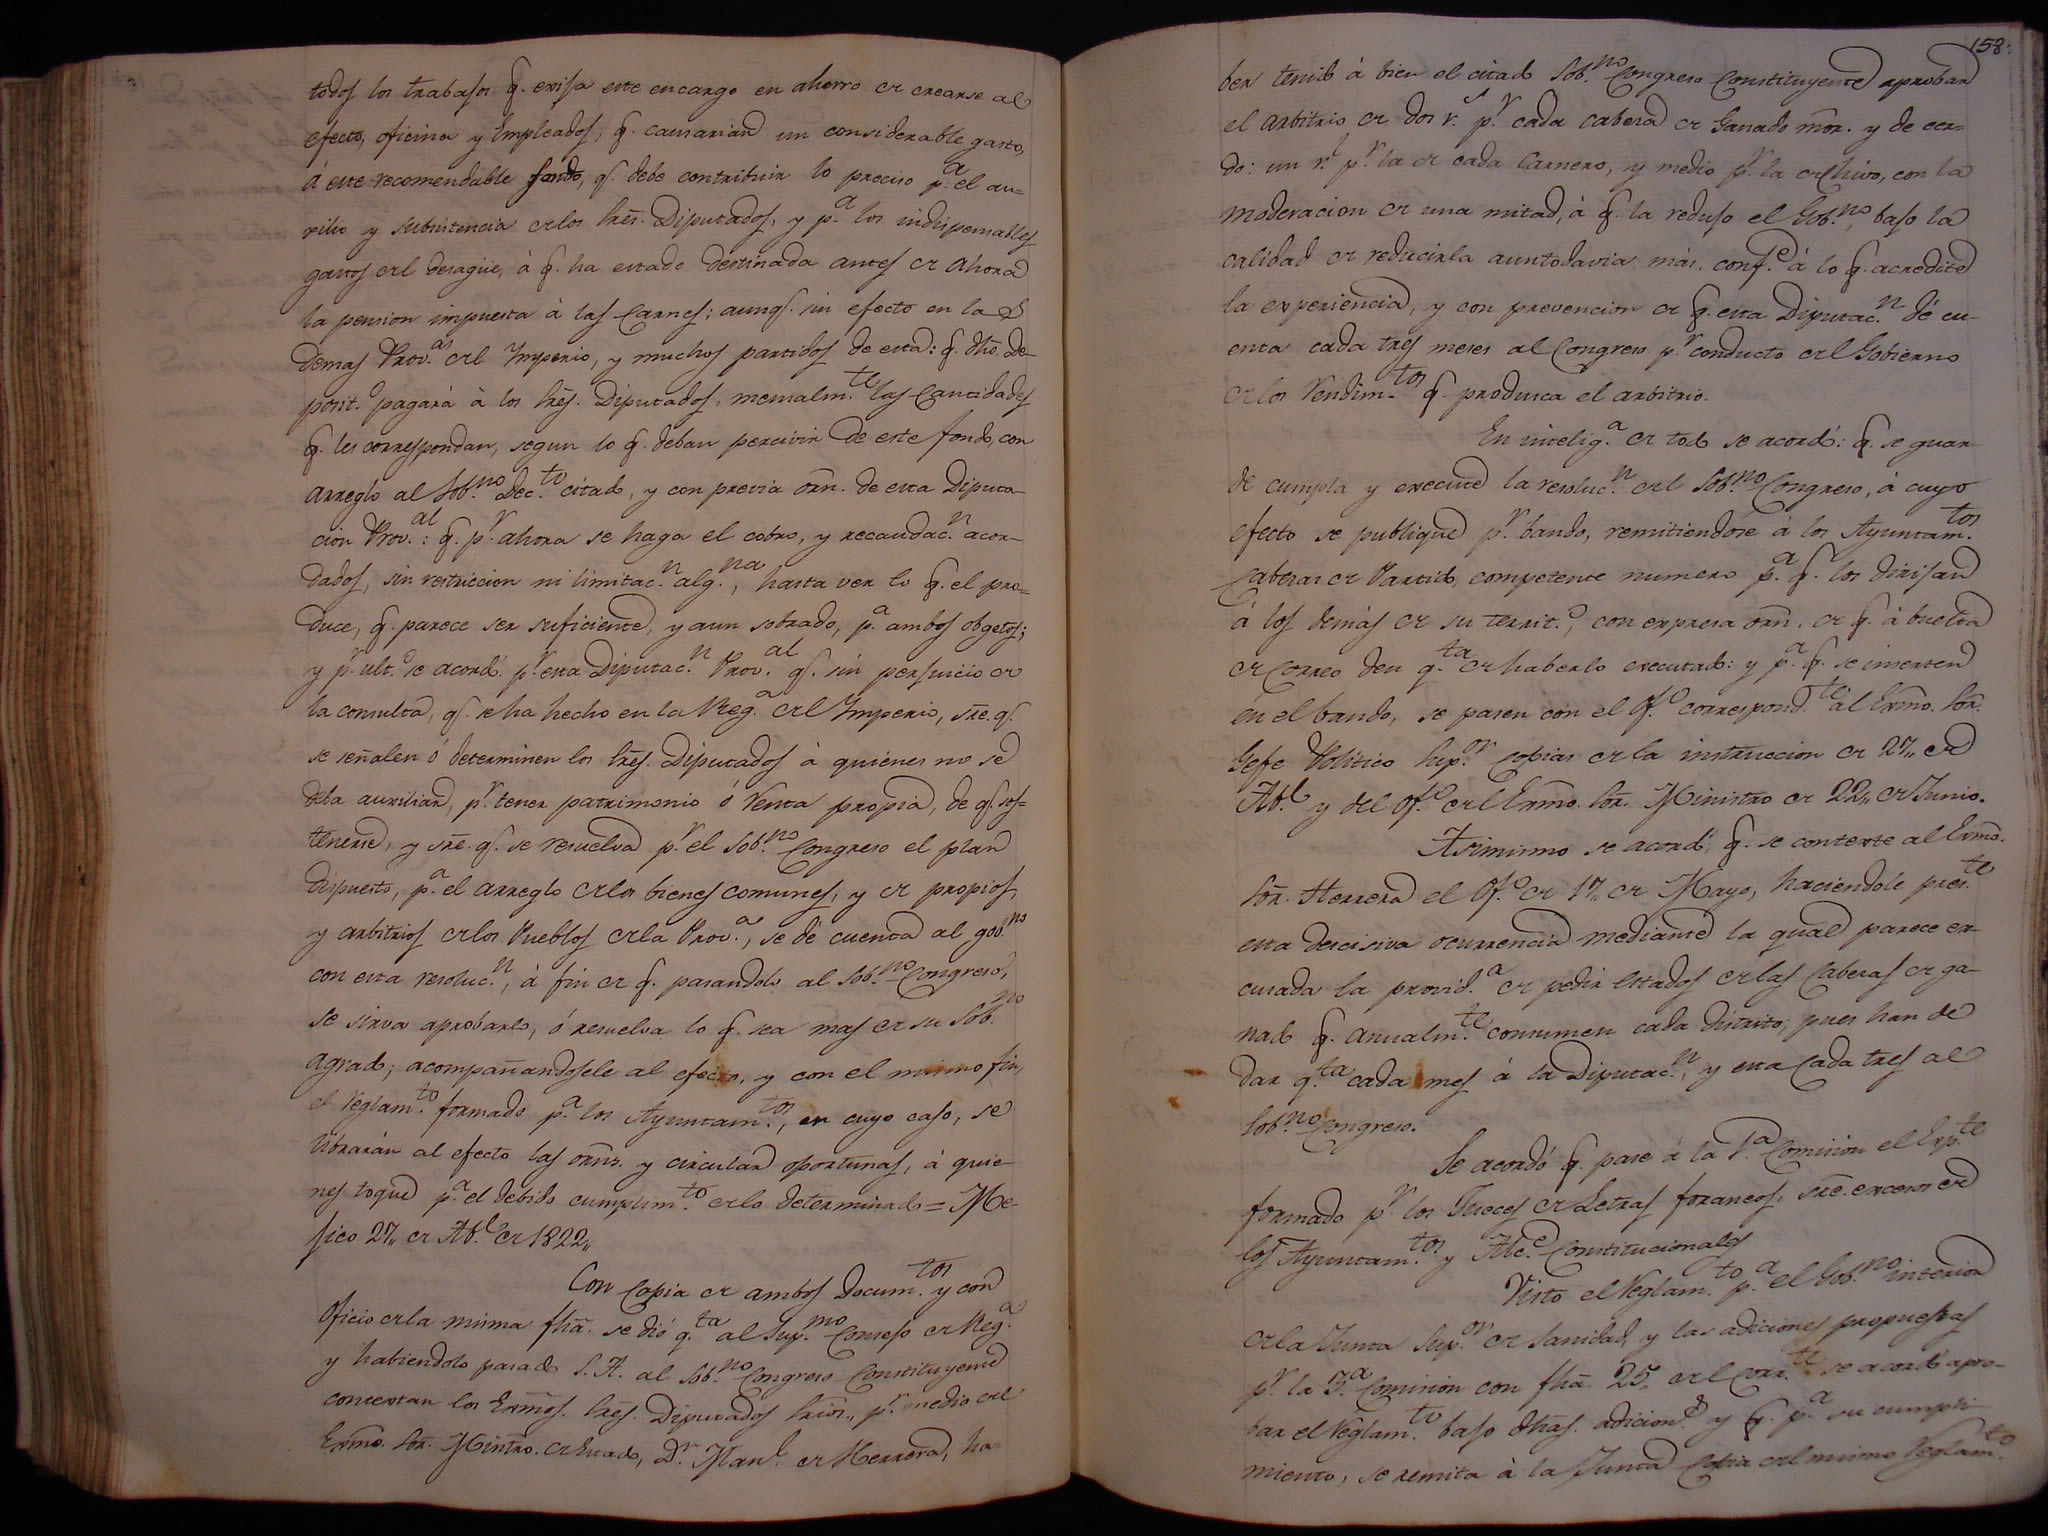 todos los trabajos q. exija este encargo en ahorro de crearse al
efecto, oficina y Empleados, q. causarian un considerable gasto,
á este recomendable fondo, q. debe contribuir lo preciso p.a el au-
xilio y subsistencia de los Sres. Diputados, y p.a los indispensables
gastos del desagüe, á q. ha estado destinada antes de ahora
la pension impuesta á las Carnes; aunq. sin efecto en las
demas Prov.as del Imperio, y muchos partidos de esta: q. dho. de-
posit.o pagará á los Sres. Diputados, mensalm.te las Cantidades
q. les correspondan, segun lo q. deban percivir de este fondo, con
arreglo al Sob.no Dec.to citado, y con previa orn. de esta Diputa-
cion Prov.al: q. p.r ahora se haga el cobro, y recaudac.n acor-
dados, sin restriccion ni limitac.n alg.na, hasta ver lo q. el pro-
duce, q. parece ser suficiente, y aun sobrado, p.a ambos obgetos;
y p.r ult.o se acordó p.r esta Diputac.n Prov.al q. sin perjuicio de
la consulta, q. se ha hecho en la Reg.a del Imperio, sre. q.
se señalen ó determinen los Sres. Diputados á quienes no se
deba auxiliar, p.r tener patrimonio ó renta propia, de q. sos-
tenerse, y sre. q. se resuelva p.r el Sob.no Congreso el plan
dispuesto, p.a el arreglo de los bienes comunes, y de propios,
y arbitrios de los Pueblos de la Prov.a, se dé cuenta al gob.no
con esta resoluc.n, á fin de q. pasandolo al Sob.no Congreso,
se sirva aprobarlo, ó resuelva lo q. sea mas de su Sob.no
agrado; acompañandosele al efecto, y con el mismo fin,
el Reglam.to formado p.a los Ayuntam.tos, en cuyo caso, se
librarán al efecto las orns. y circular oportunas, á quie-
nes toque p.a el debido cumplim.to de lo determinado = Me-
jico 27,, de Ab.l de 1822,,
Con Copia de ambos Docum.tos y con
Oficio de la misma fha. se dió q.ta al Sup.mo Consejo de Reg.a
y habiendolo pasado S. A. al Sob.no Congreso Constituyente
contestan los Exmos. Sres. Diputados Srios., p.r medio del
Exmo. Sor. Mintro. de Estado, D.r Man.l de Herrera, ha-
158.
ber tenido á bien el citado Sob.no Congreso Constituyente aprobar
el arbitrio de dos r.s p.r cada cabeza de Ganado mor. y de cer-
do: un r.l p.r la de cada Carnero, y medio p.r la de Chivo, con la
moderacion de una mitad, á q. la redujo el Gob.no, bajo la
calidad de reducirla aun todavia más, conf.e á lo q. acredite
la experiencia, y con prevencion de q. esta Diputac.n dé cu-
enta cada tres meses al Congreso p.r conducto del Gobierno
de los Rendim.tos q. produzca el arbitrio.
En intelig.a de todo se acordó: q. se guar-
de cumpla y execute la resoluc.n del Sob.no Congreso, á cuyo
efecto se publique p.r bando, remitiendose á los Ayuntam.tos
Cabezas de Partido, competente numero p.a q. los dirijan
á los demás de su territ.o, con expresa orn. de q. á buelta
de Correo den q.ta de haberlo executado: y p.a q. se inserten
en el bando, se pasen con el Of.o correspond.te al Exmo. Sor.
Gefe Politico Sup.or copias de la instruccion de 27,, de
Ab.l y del Of.o del Exmo. Sor. Ministro de 22,, de Junio.
Asimismo se acordó, q. se conteste al Exmo.
Sor. Herrera el Of.o de 17,, de Mayo, haciendole pres.te
esta descisiva ocurrencia mediante la qual parece ex-
cusada la provid.a de pedir Estados de las Cabezas de ga-
nado q. anualm.te consumen cada distrito; pues han de
dar q.ta cada mes á la Diputac.n, y esta cada tres al
Sob.no Congreso.
Se acordó q. pase á la 1.a Comision el Exp.te
formado p.r los Jueces de Letras foraneos, sre. excesos de
los Ayuntam.tos y Alc.s Constitucionales
Visto el Reglam.to p.a el Gob.no interior
de la Junta Sup.or de Sanidad, y las adiciones propuestas
p.r la 3.a Comision con fha. 25,, del Corr.te se acordó apro-
bar el Reglam.to bajo dhas. adicion.s y q. p.a su cumpli-
miento, se remita á la Junta Copia del mismo Reglam.to